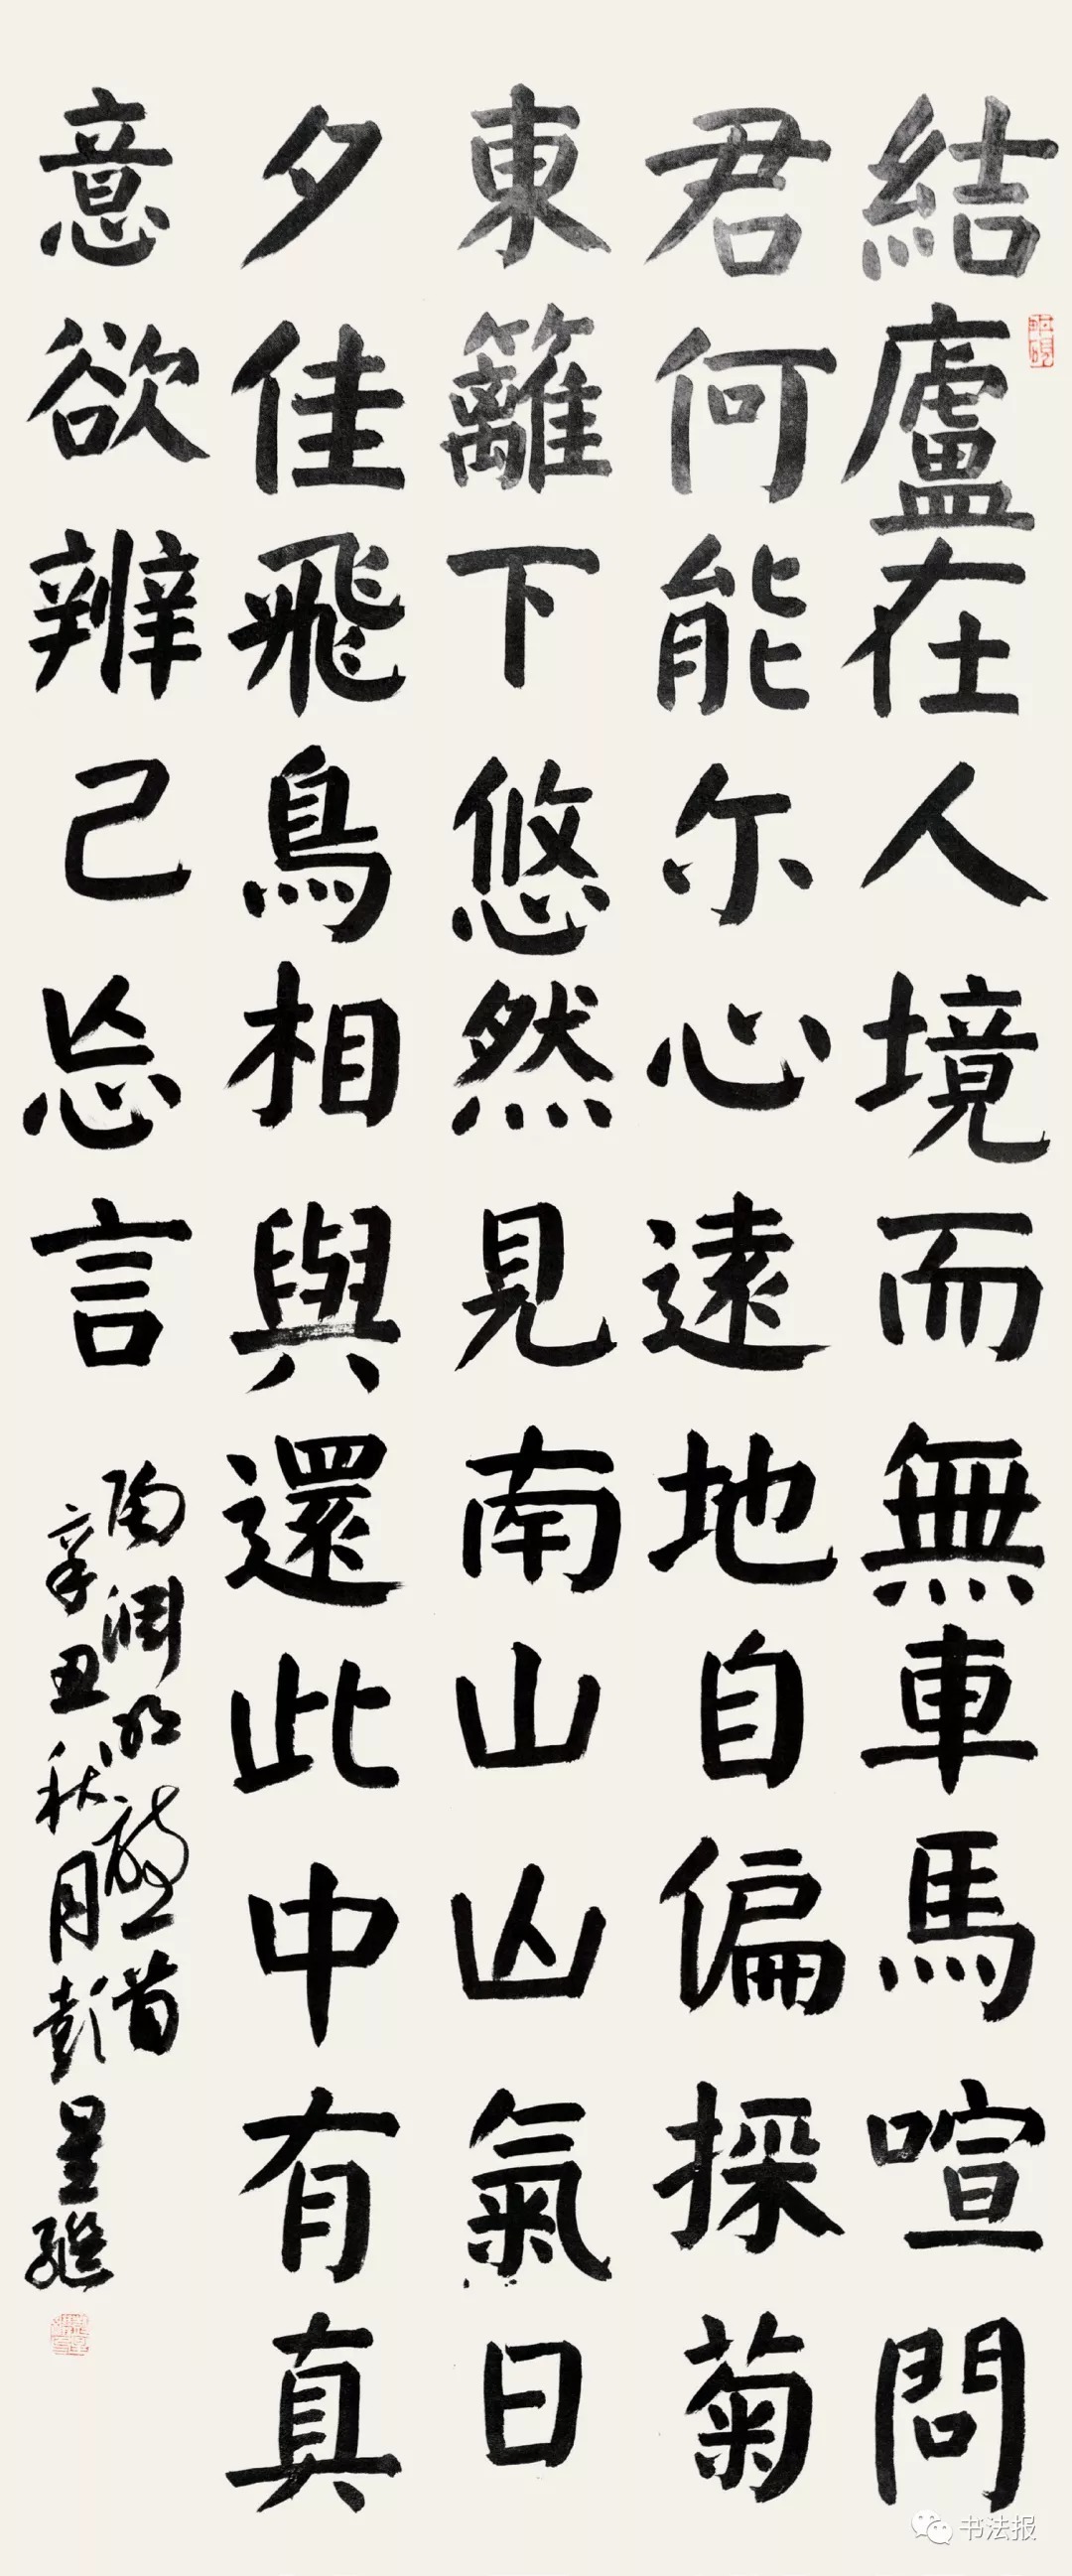 結廬在人境而無車馬喧問
君何能尔心遠地自偏採菊
東籬下悠然見南山山氣日
夕佳飛鳥相與還此中有真
意欲辨已忘言
陶渊明詩一首
辛丑秋月彭呈
书法报